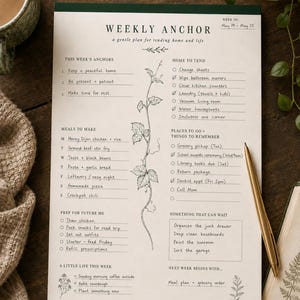 WEEK OF:
WEEKLY ANCHOR
a gentle plan for tending home and life
THIS WEEK'S ANCHORS
1. Keep a peaceful home
2. Be present
3. Make time for rest
MEALS TO MAKE
M Honey Dijon chicken + rice
T Ground beef stir fry
W Tacos + black beans
T Pasta + garlic bread
F Leftovers / easy night
S Homemade pizza
S Crockpot chili
PREP FOR FUTURE ME
Thaw chicken
Pack snacks for road trip
Set out outfits
Starter - feed Friday
Refill prescriptions
A LITTLE LIFE THIS WEEK
Sunday morning coffee outside
Bake sourdough
Plant something new
HOME TO TEND
Change sheets
Wipe bathroom mirrors
Clean kitchen counters
Laundry (towels + kids)
Vacuum living room
Water houseplants
Declutter counter
PLACES TO GO +
THINGS TO REMEMBER
Grocery pickup (Tue)
School awards ceremony
Library books due (Fri)
Return package
Dentist appt (Fri 2pm)
Call Mom
SOMETHING THAT CAN WAIT
Organize the junk drawer
Deep clean baseboards
Paint the sunroom
Sort the garage
NEXT WEEK BEGINS WITH...
Meal plan + grocery order